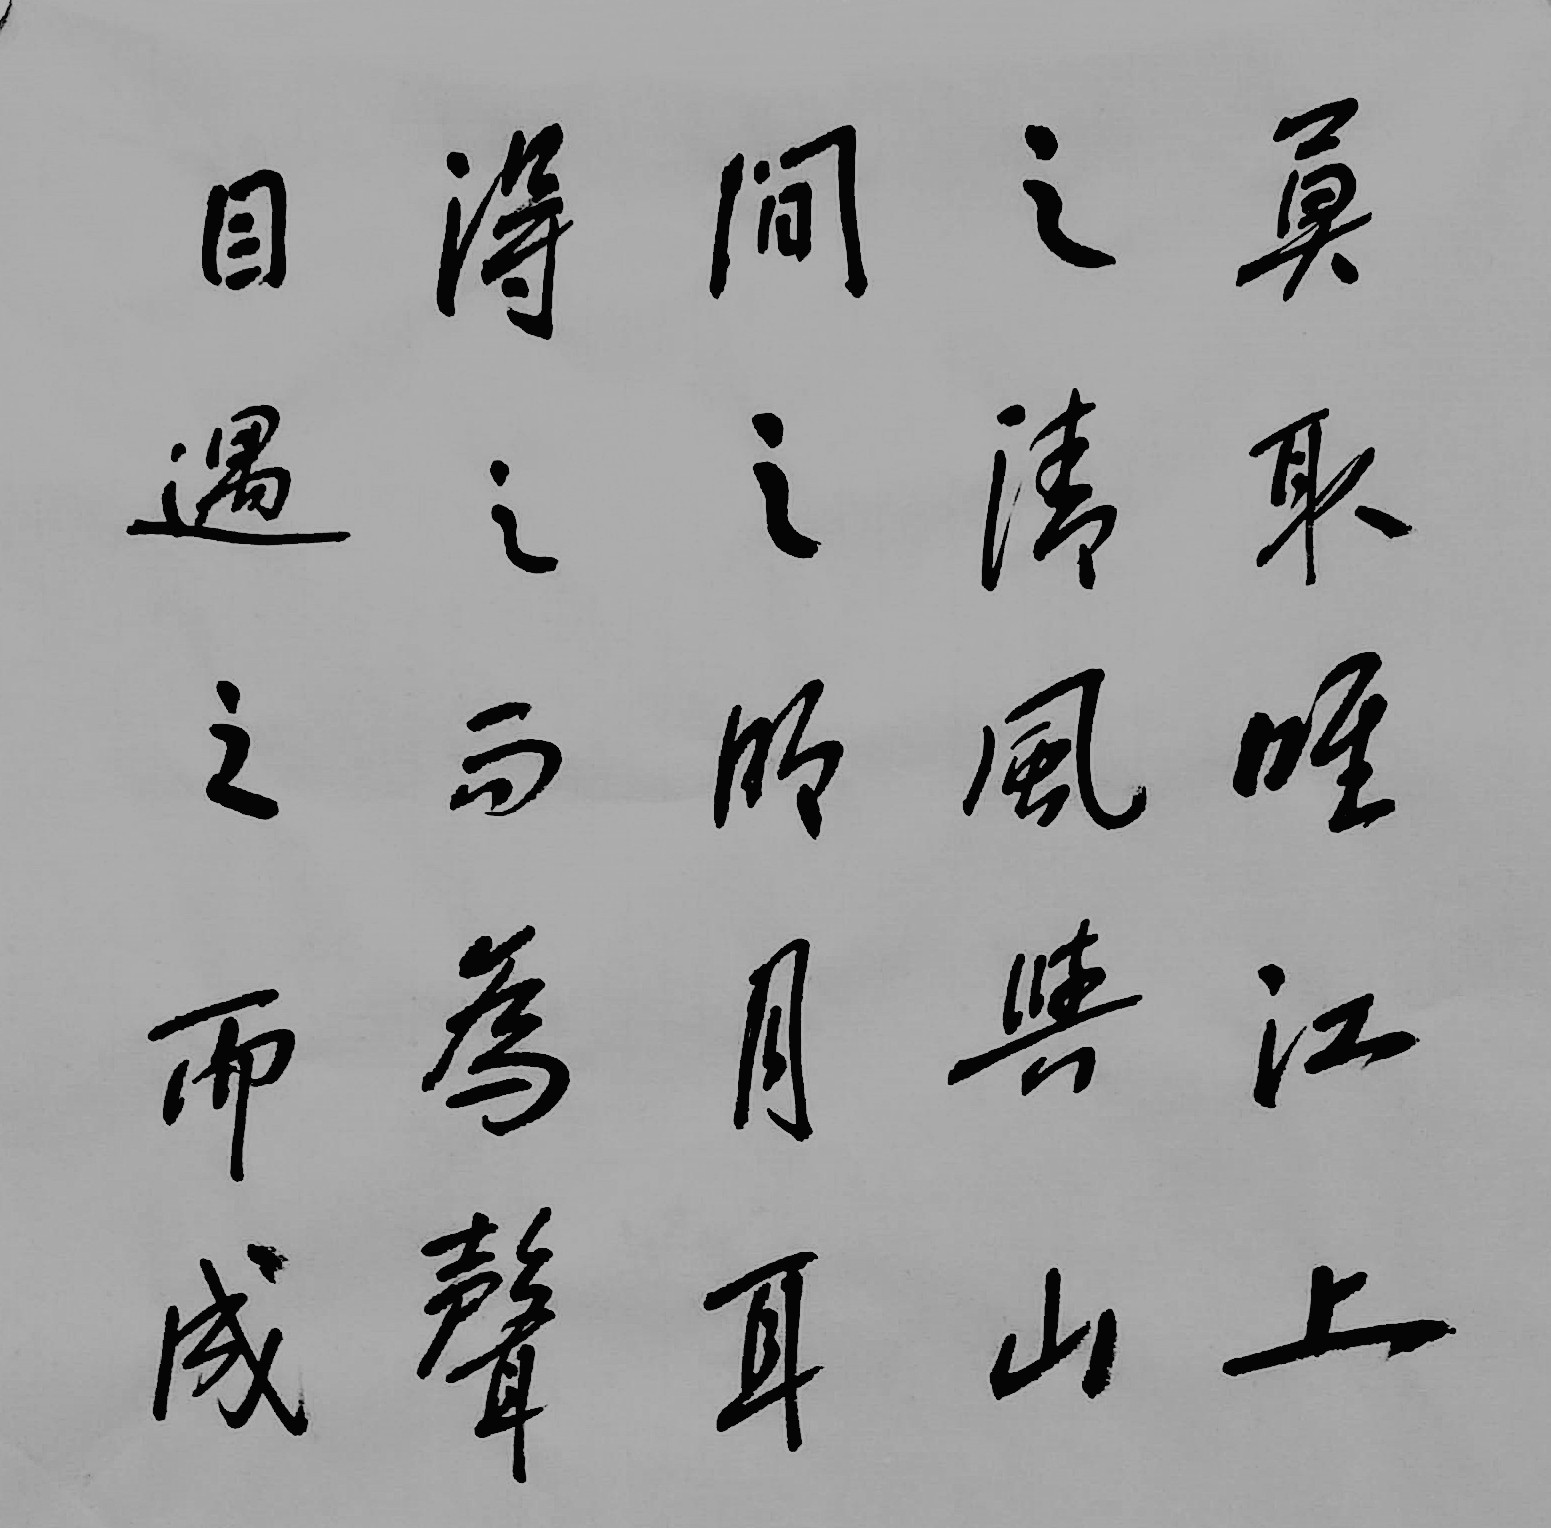 莫取唯江上
之清風與山
間之明月耳
得之而為聲
目遇之而成